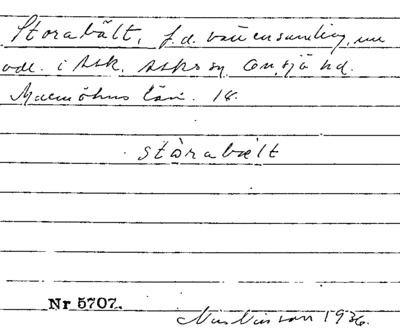 Storabält, f.d. vattensamling, nu
odl. i Ask, Asks sn. Onsjö hd.
Malmöhus län. 18.
stòrabælt
Nr 5707.
Nils Nilsson 1936.